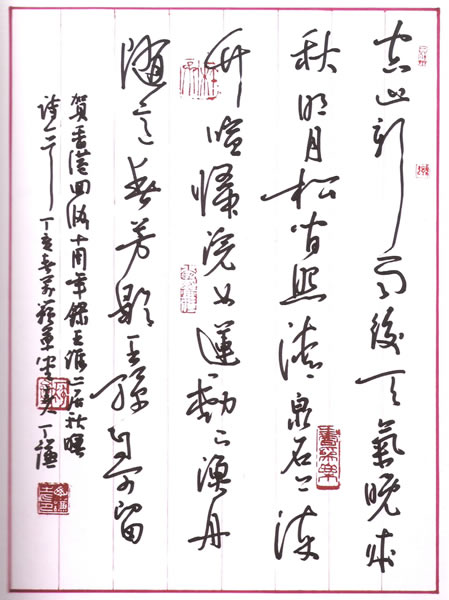 空山新雨後天氣晚来
秋明月松間照清泉石上流
竹喧歸浣女蓮動下漁舟
隨意春芳歇王孫自可留
賀香港回歸十周年錄王維山居秋暝
詩一首丁亥春 丁謙